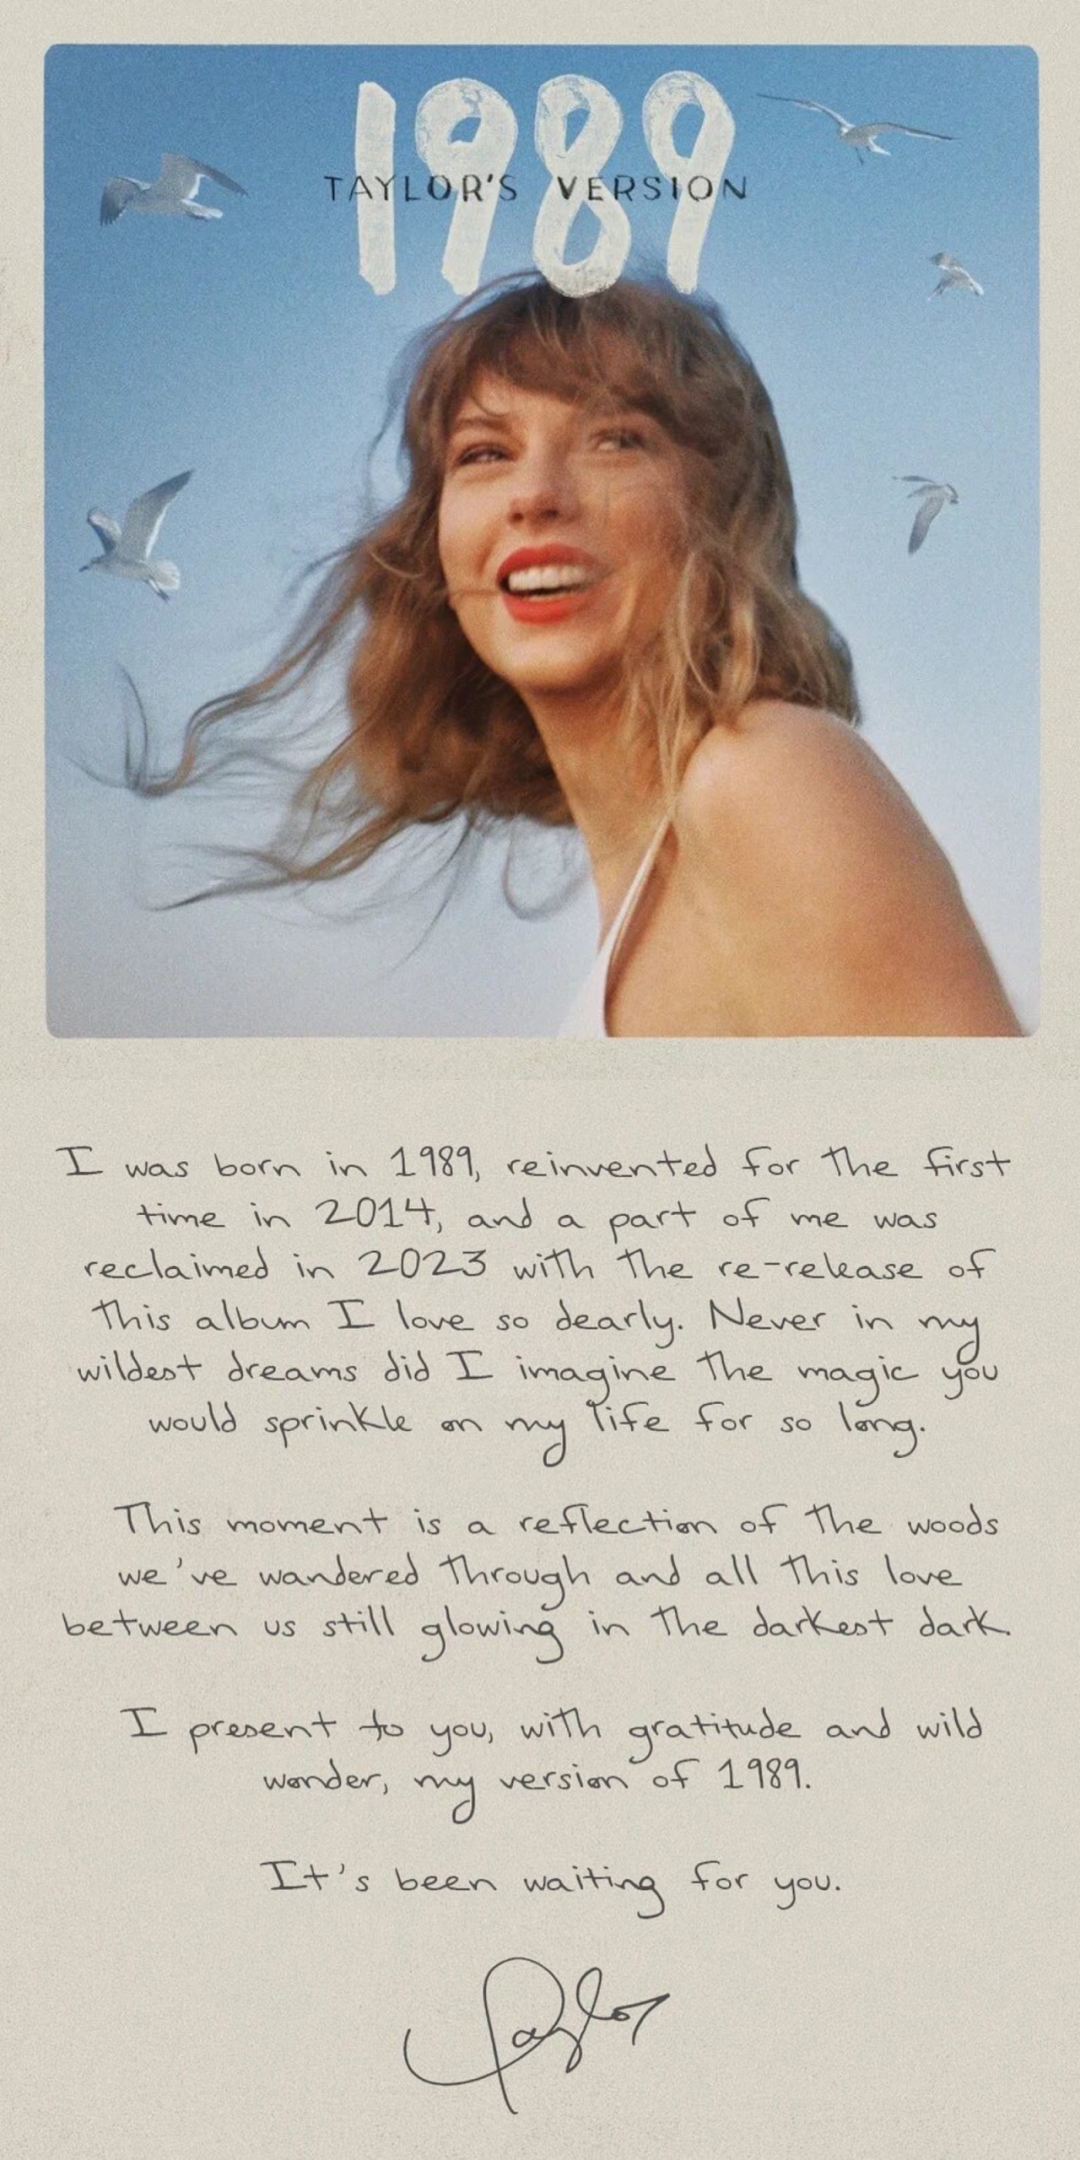 1989
TAYLOR'S VERSION
I was born in 1989, reinvented for the first
time in 2014, and a part of me was
reclaimed in 2023 with the re-release of
this album I love so dearly. Never in my
wildest dreams did I imagine the magic you
would sprinkle on my life for so long.
This moment is a reflection of the woods
we've wandered through and all this love
between us still glowing in the darkest dark.
I present to you, with gratitude and wild
wonder, my version of 1989.
It's been waiting for you.
Taylor